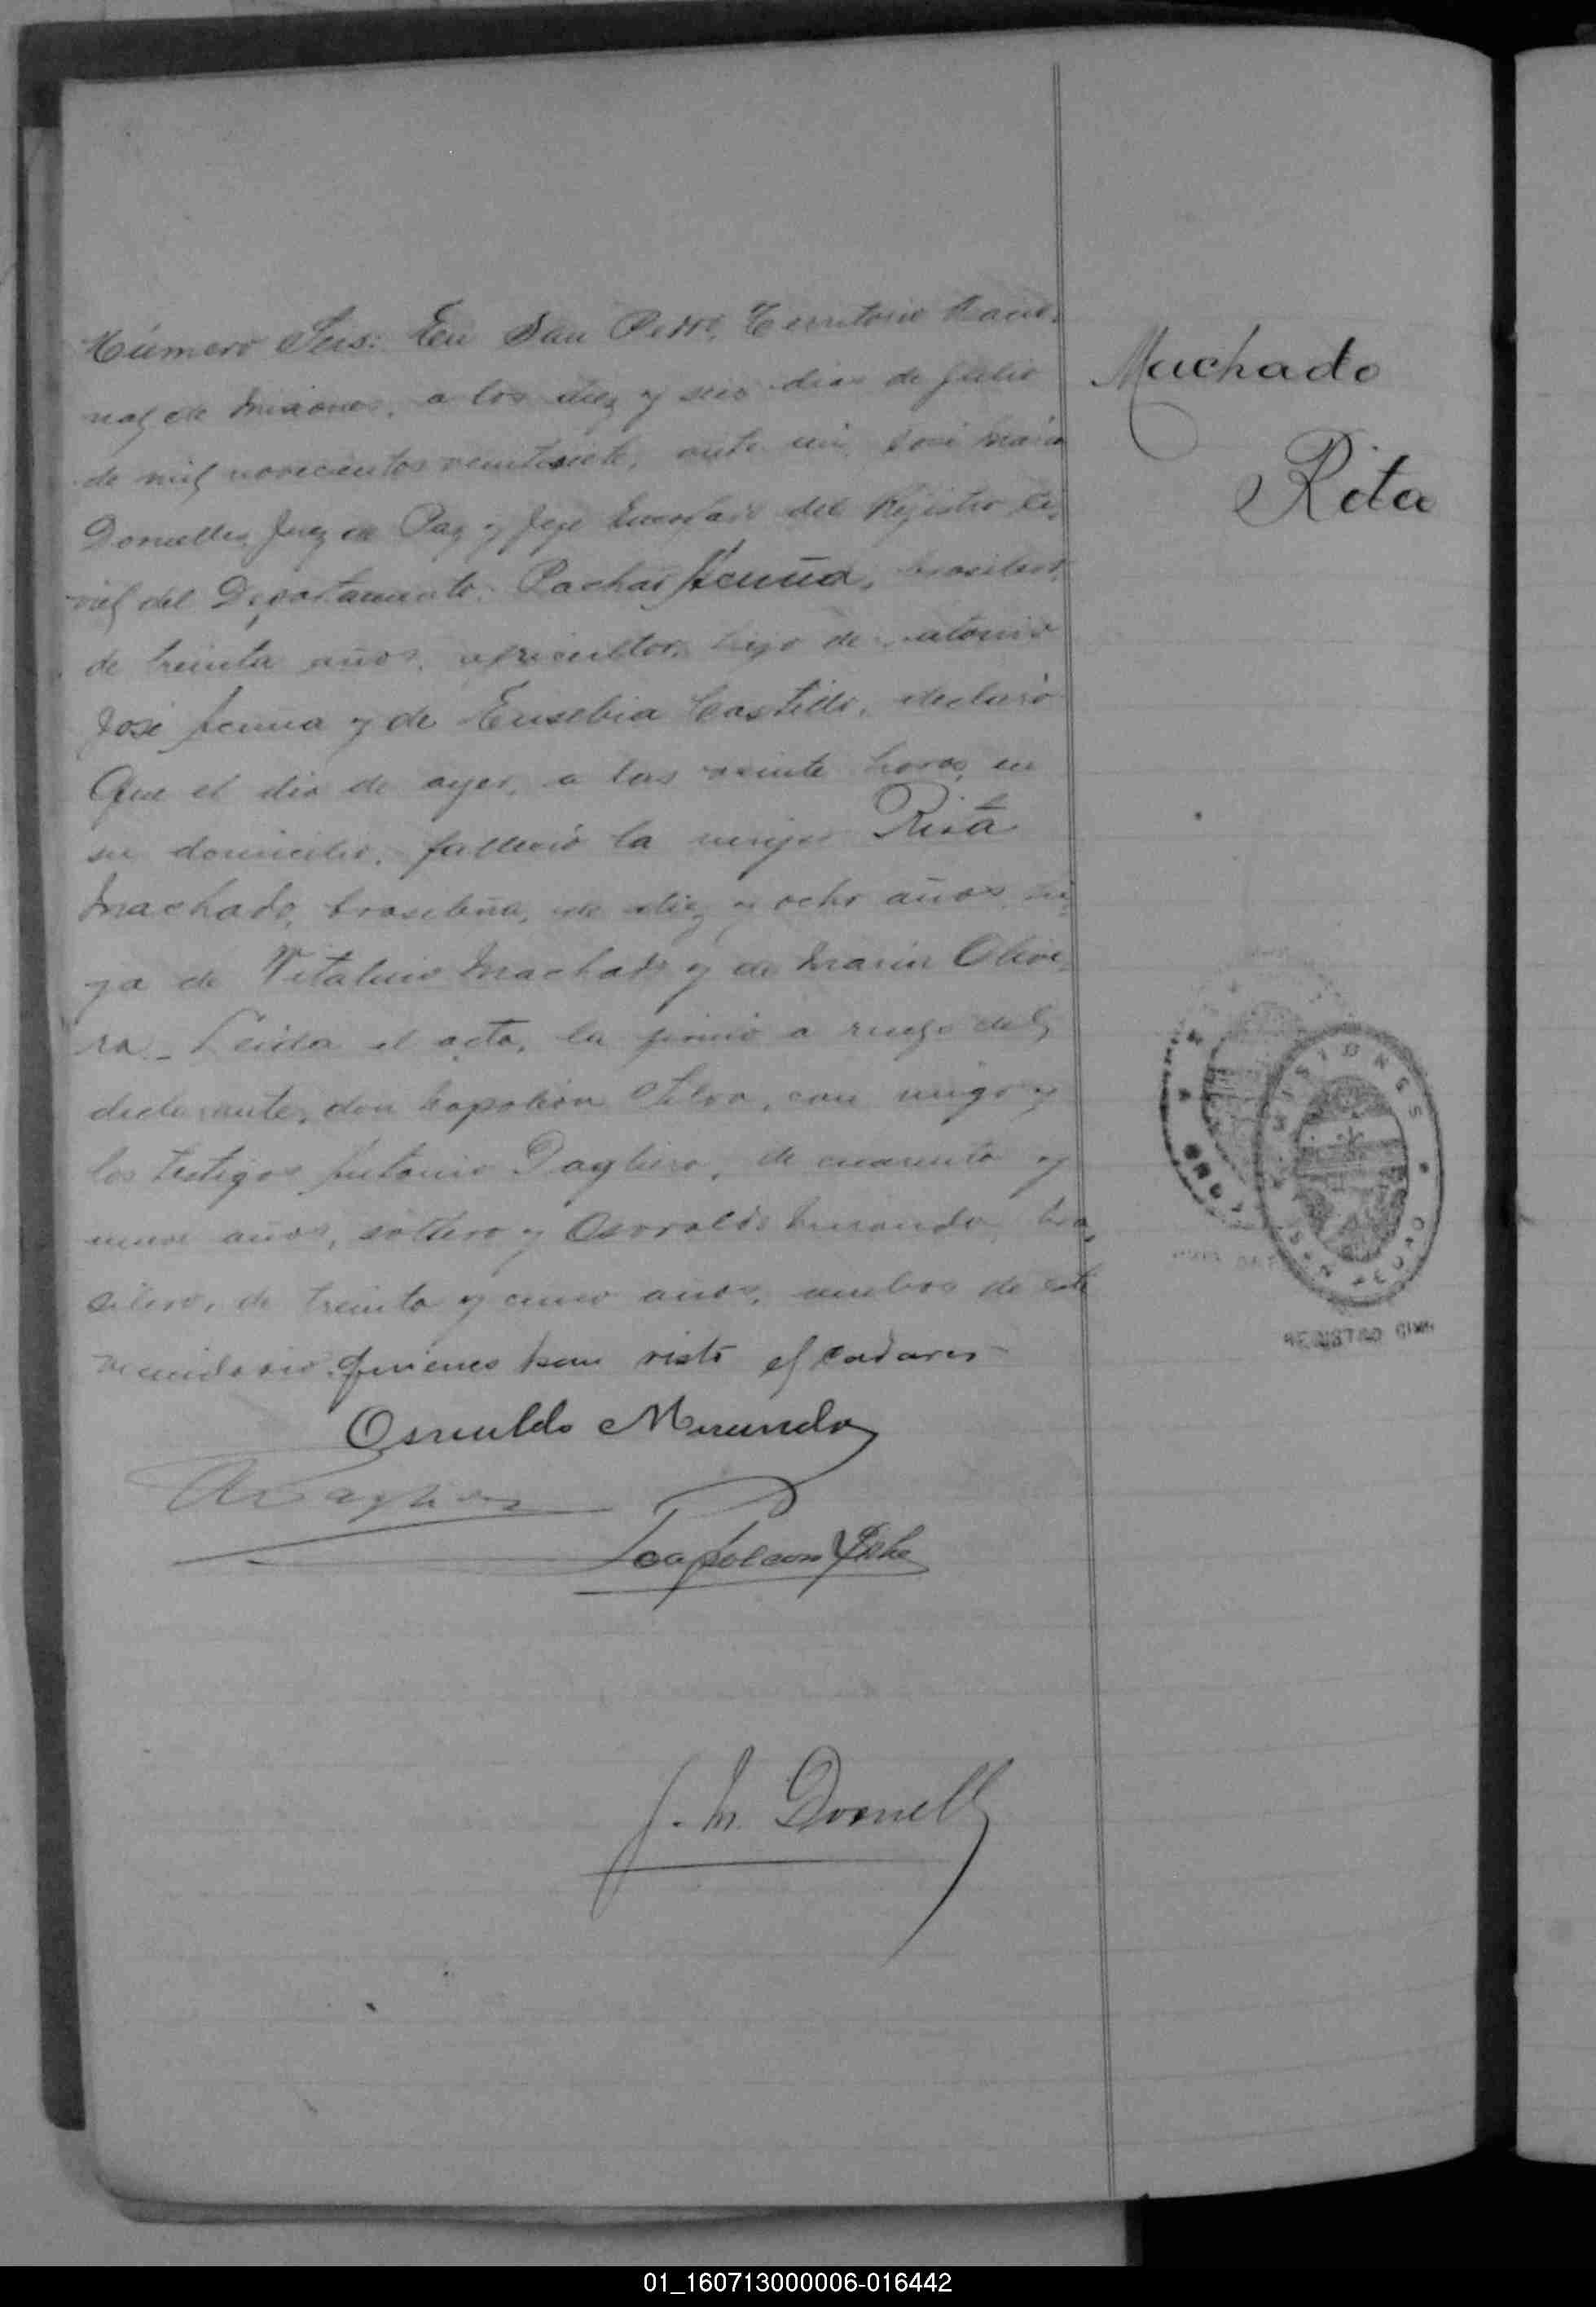 Número Seis: En San Pedro, Territorio Nacio-
nal de Misiones, a los diez y seis dias de Julio
de mil novecientos veintisiete, ante mi, José Maria
Dornelles, Juez de Paz y Jefe Encargado del Registro Ci-
vil del Departamento, Acuña, brasilero,
de treinta años, agricultor, hijo de Antonio
José Acuña y de Eusebia Castillo, declaró
Que el dia de ayer, a las veinte horas, en
su domicilio, falleció la mujer Rita
Machado, brasileña, de diez y ocho años, hi-
ja de Machado y de Maria Olivei-
ra._ Leida el acta, la firmó a ruego del
declarante, don Napoleón Silva, con migo y
los testigos Antonio Pagliero, de cuarenta y
nueve años, soltero y Osvaldo Miranda, bra-
silero, de treinta y cinco años, ambos de este
vecindario quienes han visto el cadaver
Osvaldo Miranda
Napoleon
J. M. Dornell
Machado
Rita
MISIONES
SAN PEDRO
REGISTRO CIVIL
01_160713000006-016442